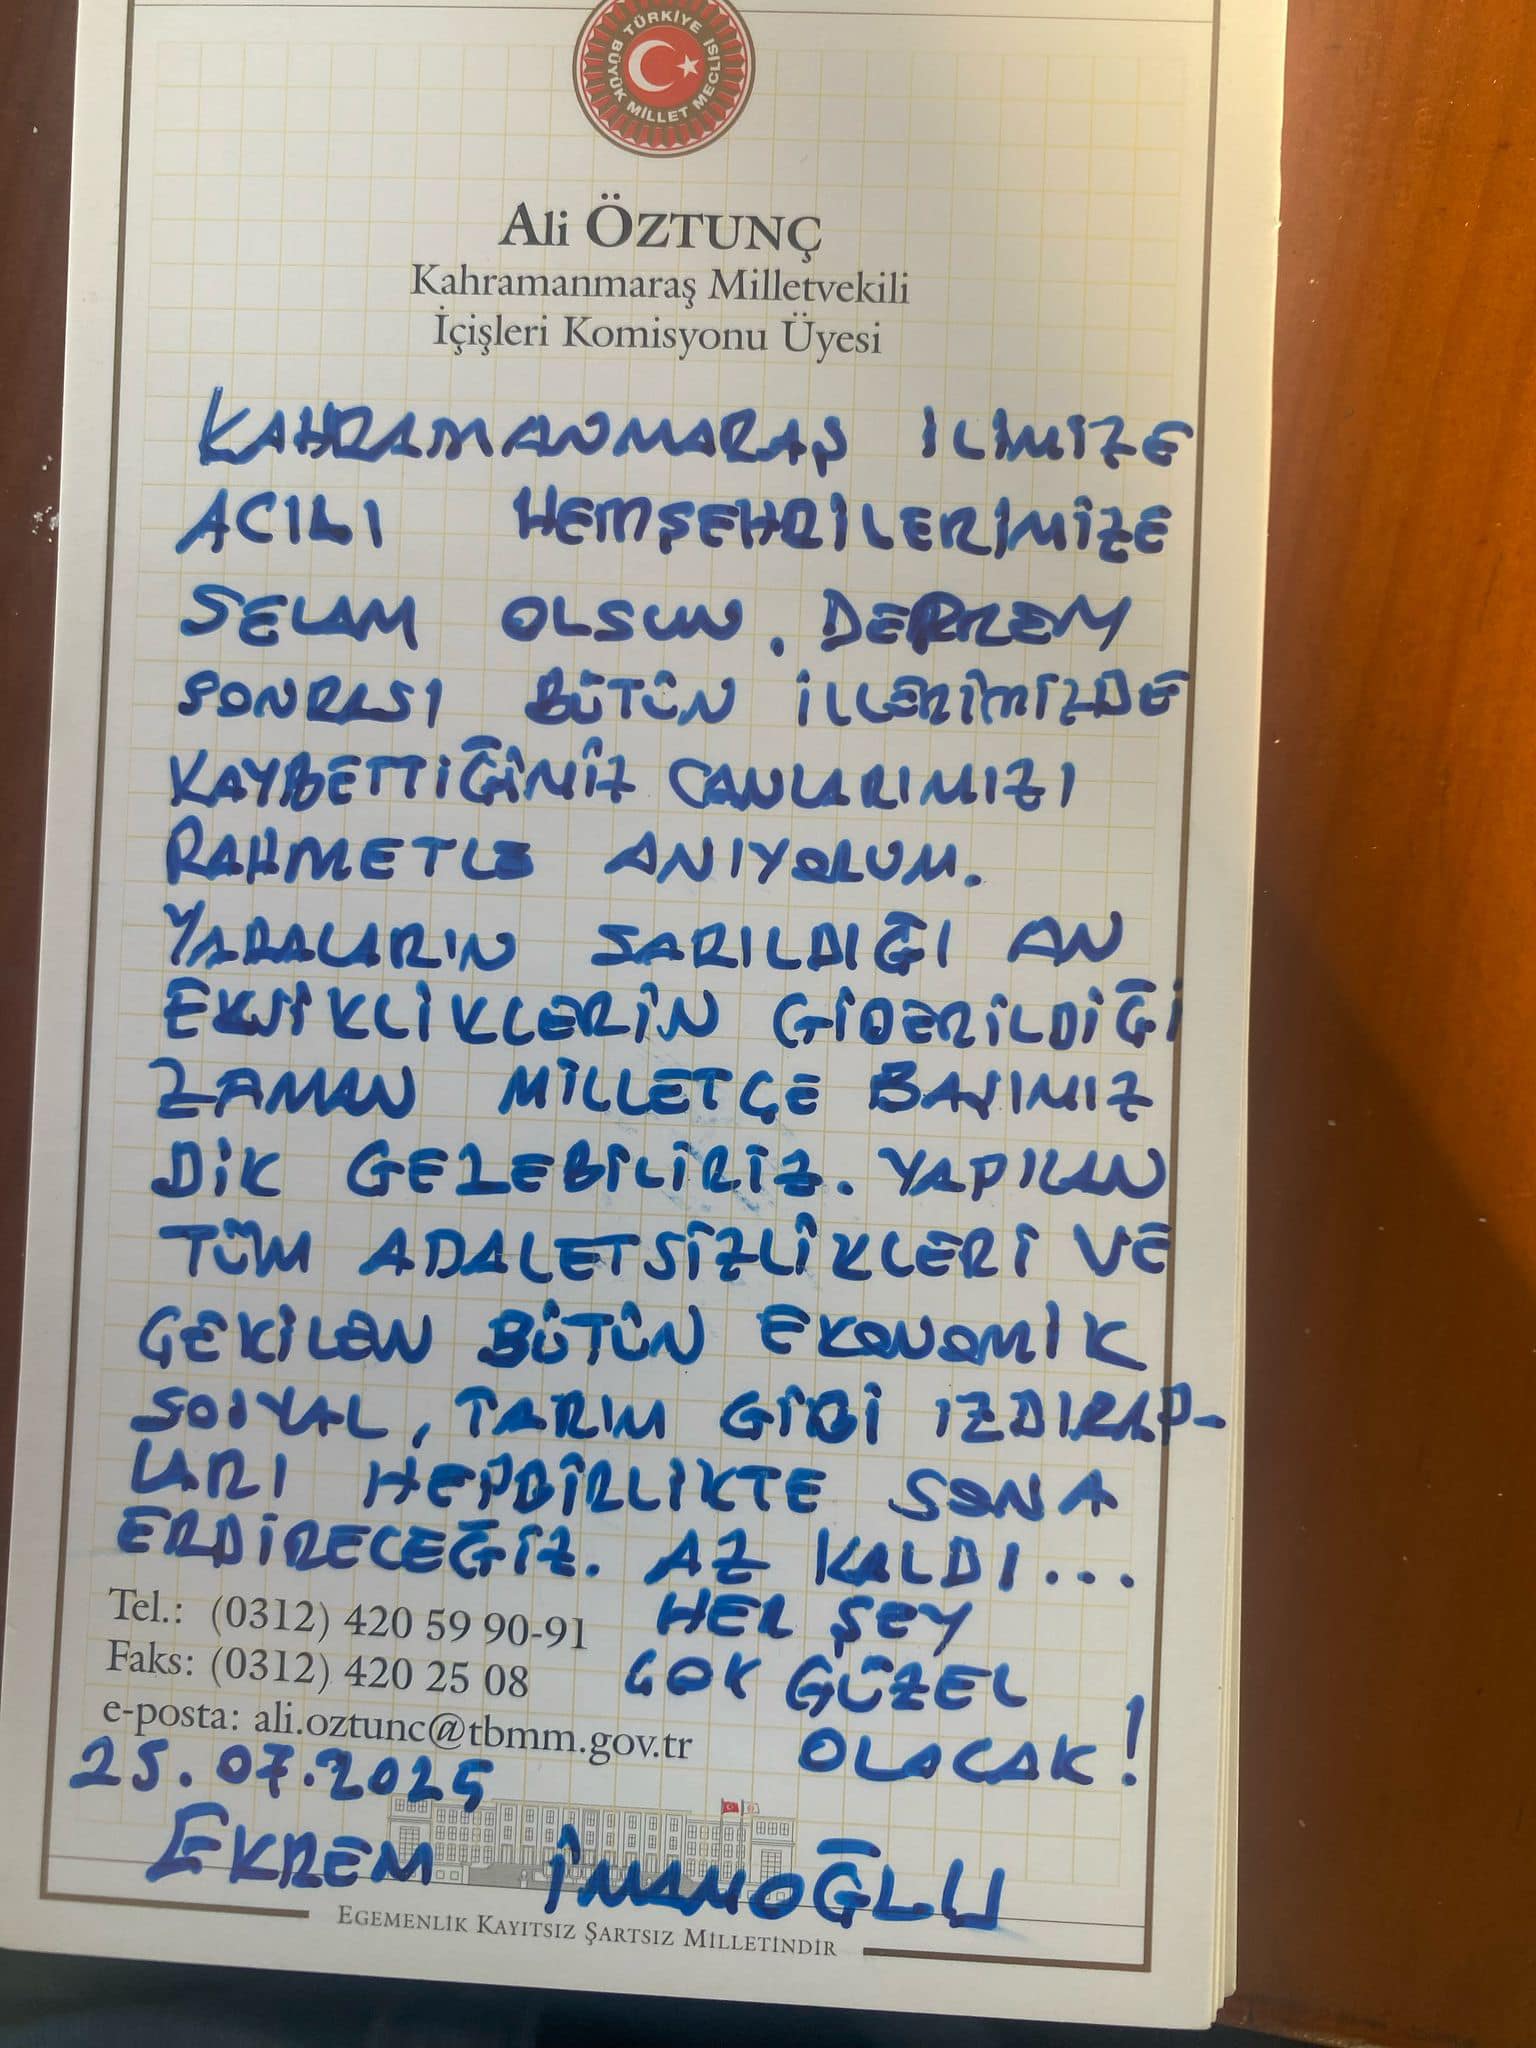 TÜRKİYE BÜYÜK MİLLET MECLİSİ
Ali ÖZTUNÇ
Kahramanmaraş Milletvekili
İçişleri Komisyonu Üyesi
KAHRAMANMARAŞ İLİMİZE
ACILI HEMŞEHRİLERİMİZE
SELAM OLSUN. DEPREM
SONRASI BÜTÜN İLLERİMİZDE
KAYBETTİĞİMİZ CANLARIMIZI
RAHMETLE ANIYORUM.
YARALARIN SARILDIĞI AN
EKSİKLİKLERİN GİDERİLDİĞİ
ZAMAN MİLLETÇE BAŞIMIZ
DİK GEZEBİLİRİZ. YAPILAN
TÜM ADALETSİZLİKLERİ VE
ÇEKİLEN BÜTÜN EKONOMİK
SOSYAL, TARIM GİBİ IZDIRAP-
LARI HEPBİRLİKTE SONA
ERDİRECEĞİZ. AZ KALDI...
HER ŞEY
ÇOK GÜZEL
OLACAK!
Tel.: (0312) 420 59 90-91
Faks: (0312) 420 25 08
e-posta: ali.oztunc@tbmm.gov.tr
25.07.2025
EKREM İMAMOĞLU
EGEMENLİK KAYITSIZ ŞARTSIZ MİLLETİNDİR